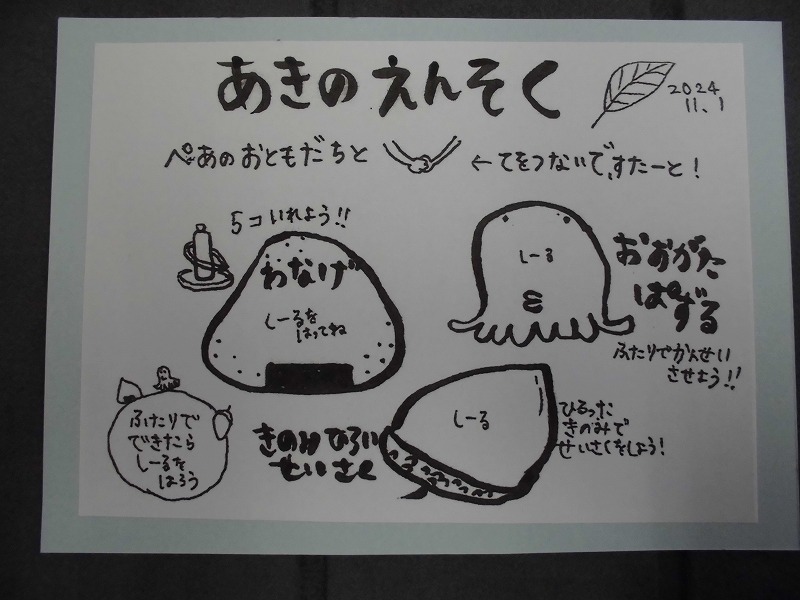 あきのえんそく
2024
11.1
ぺあのおともだちと
←てをつないで、すたーと!
5コいれよう!!
わなげ
しーるを
はってね
しーる
おおがた
ぱずる
ふたりでかんせい
させよう!!
ふたりで
できたら
しーるを
はろう
きのみひろい
せいさく
しーる
ひろった
きのみで
せいさくをしよう!